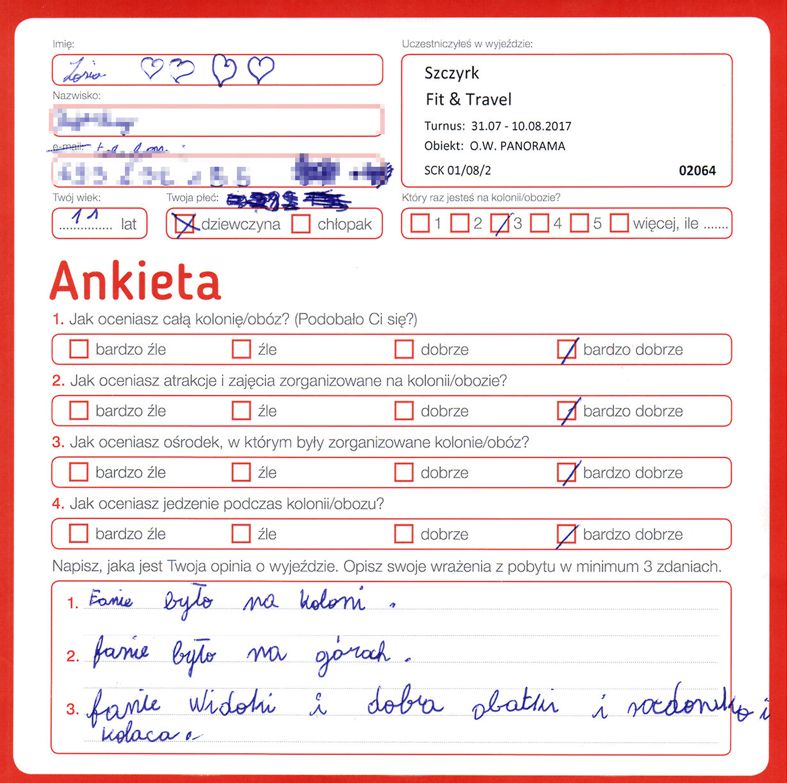 Imię:
Zosia
Nazwisko:
e-mail:
Twój wiek:
11 lat
Twoja płeć:
dziewczyna chłopak
Uczestniczyłeś w wyjeździe:
Szczyrk
Fit & Travel
Turnus: 31.07 - 10.08.2017
Obiekt: O.W. PANORAMA
SCK 01/08/2 02064
Który raz jesteś na kolonii/obozie?
1 2 3 4 5 więcej, ile .......
Ankieta
1. Jak oceniasz całą kolonię/obóz? (Podobało Ci się?)
bardzo źle źle dobrze bardzo dobrze
2. Jak oceniasz atrakcje i zajęcia zorganizowane na kolonii/obozie?
bardzo źle źle dobrze bardzo dobrze
3. Jak oceniasz ośrodek, w którym były zorganizowane kolonie/obóz?
bardzo źle źle dobrze bardzo dobrze
4. Jak oceniasz jedzenie podczas kolonii/obozu?
bardzo źle źle dobrze bardzo dobrze
Napisz, jaka jest Twoja opinia o wyjeździe. Opisz swoje wrażenia z pobytu w minimum 3 zdaniach.
1. Fanie było na koloni.
2. fanie było na górach.
3. fanie widoki i dobra obatki i i
kolaca.